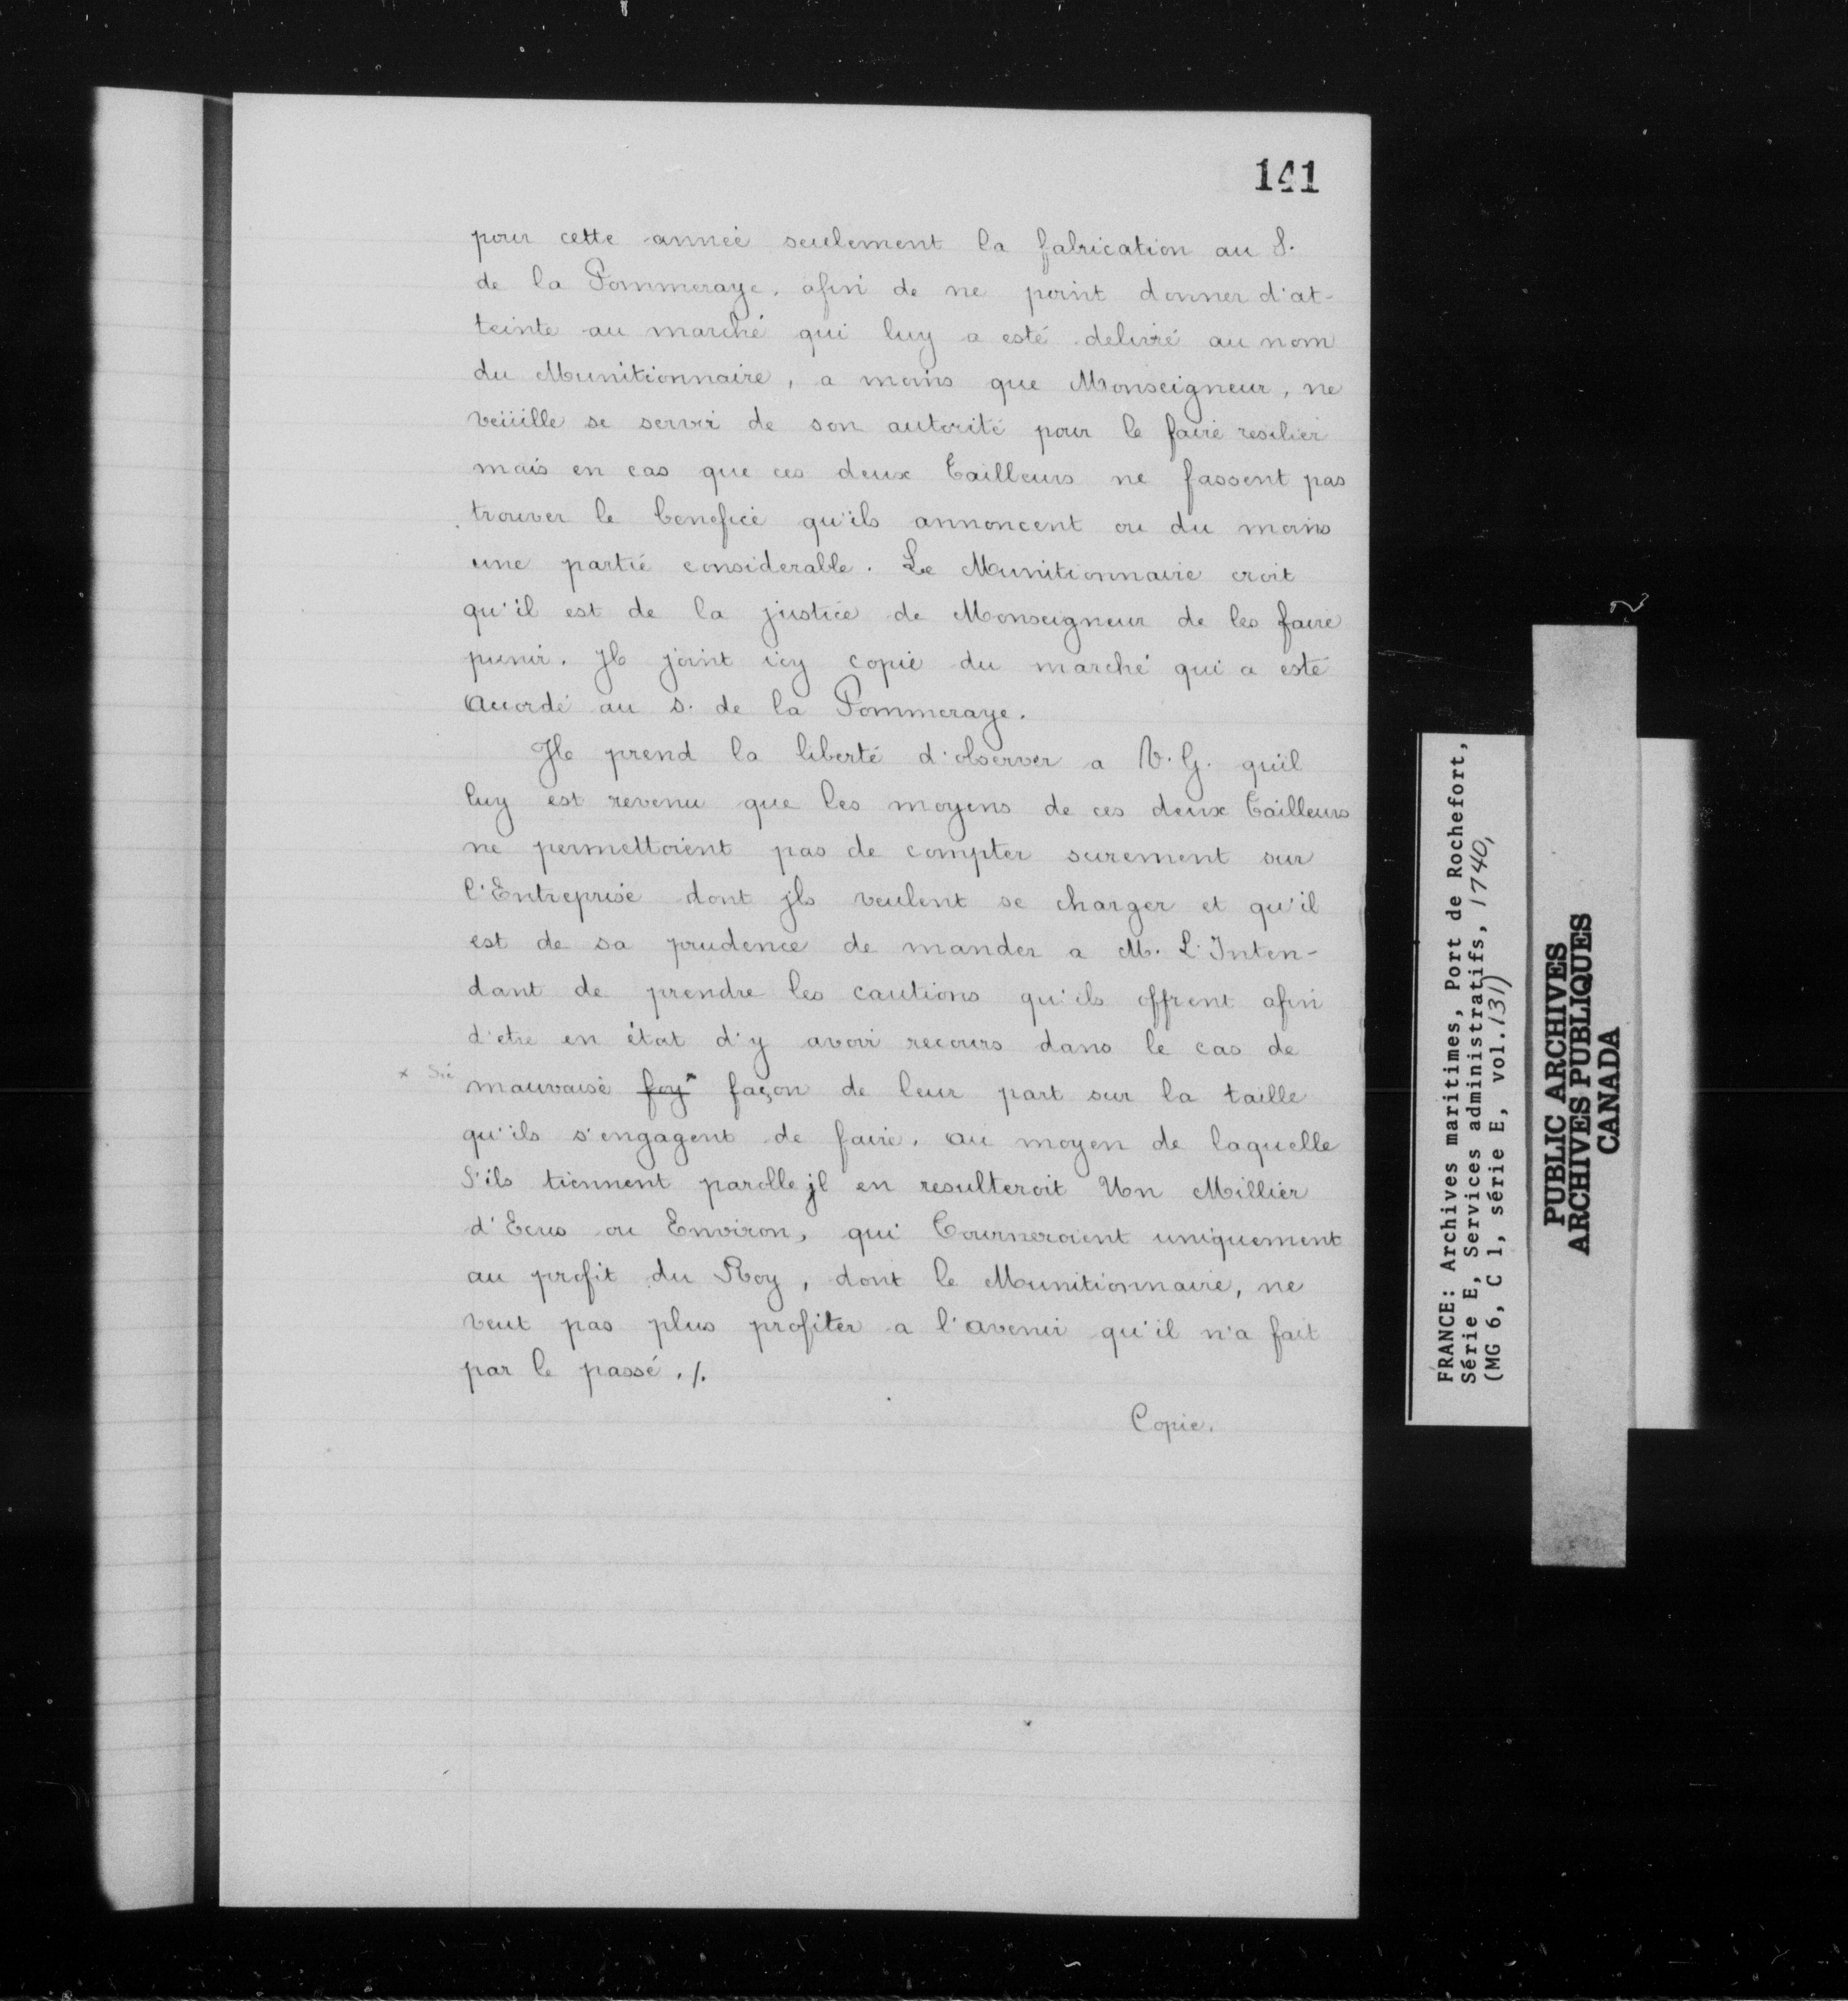 141
pour cette année seulement la fabrication au S.
de la Pommeraye. afin de ne point donner d'at-
teinte au marché qui luy a esté delivré au nom
du Munitionnaire, a moins que Monseigneur, ne
veüille se servir de son autorité pour le faire resilier
mais en cas que ces deux Tailleurs ne fassent pas
trouver le benefice qu'ils annoncent ou du moins
une partie considerable. Le Munitionnaire croit
qu'il est de la justice de Monseigneur de les faire
punir. Jl joint icy copie du marché qui a esté
accordé au s. de la Pommeraye.
Jl prend la liberté d'observer a V. G. qu'il
luy est revenu que les moyens de ces deux Tailleurs
ne permettoient pas de compter surement sur
l'Entreprise dont jls veulent se charger et qu'il
est de sa prudence de mander a M. L'Inten-
dant de prendre les cautions qu'ils offrent afin
d'etre en état d'y avoir recours dans le cas de
* Sic
mauvaise foy* façon de leur part sur la taille
qu'ils s'engagent de faire. au moyen de laquelle
S'ils tiennent parolle jl en resulteroit Un Millier
d'Ecus ou Environ, qui Tourneroient uniquement
au profit du Roy, dont le Munitionnaire, ne
veut pas plus profiter a l'avenir qu'il n'a fait
par le passé. /.
Copie.
FRANCE: Archives maritimes, Port de Rochefort,
Série E, Services administratifs, 1740,
(MG 6, C 1, série E, vol. 131)
PUBLIC ARCHIVES
ARCHIVES PUBLIQUES
CANADA